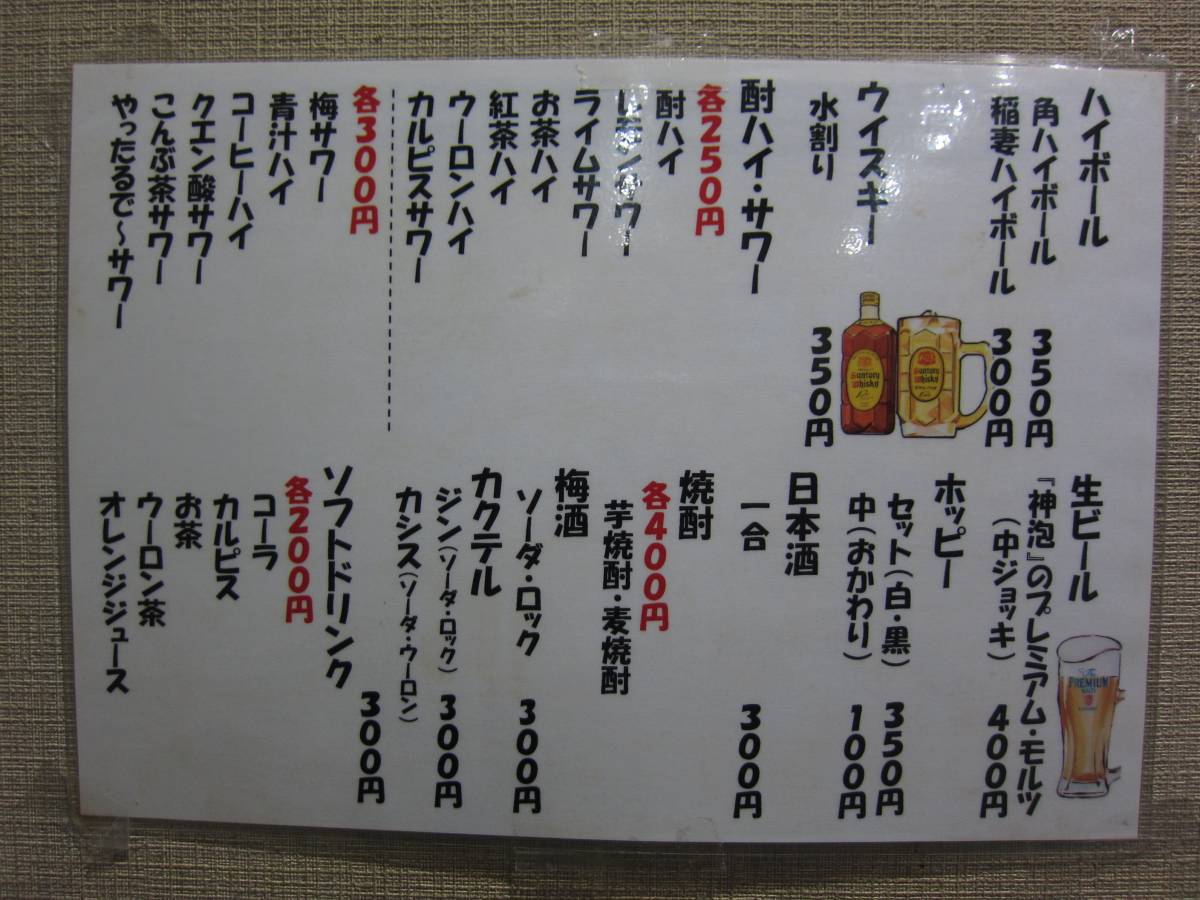 ハイボール
角ハイボール 350円
稲妻ハイボール 300円
ウイスキー
水割り 350円
酎ハイ・サワー
各250円
酎ハイ
レモンサワー
ライムサワー
お茶ハイ
紅茶ハイ
ウーロンハイ
カルピスサワー
各300円
梅サワー
青汁ハイ
コーヒーハイ
クエン酸サワー
こんぶ茶サワー
やったるで～サワー
Suntory
Whisky
Suntory
Whisky
生ビール
『神泡』のプレミアム・モルツ
(中ジョッキ) 400円
PREMIUM
ホッピー
セット(白・黒) 350円
中(おかわり) 100円
日本酒
一合 300円
焼酎
各400円
芋焼酎・麦焼酎
梅酒
ソーダ・ロック 300円
カクテル
ジン(ソーダ・ロック) 300円
カシス(ソーダ・ウーロン) 300円
ソフトドリンク
各200円
コーラ
カルピス
お茶
ウーロン茶
オレンジジュース